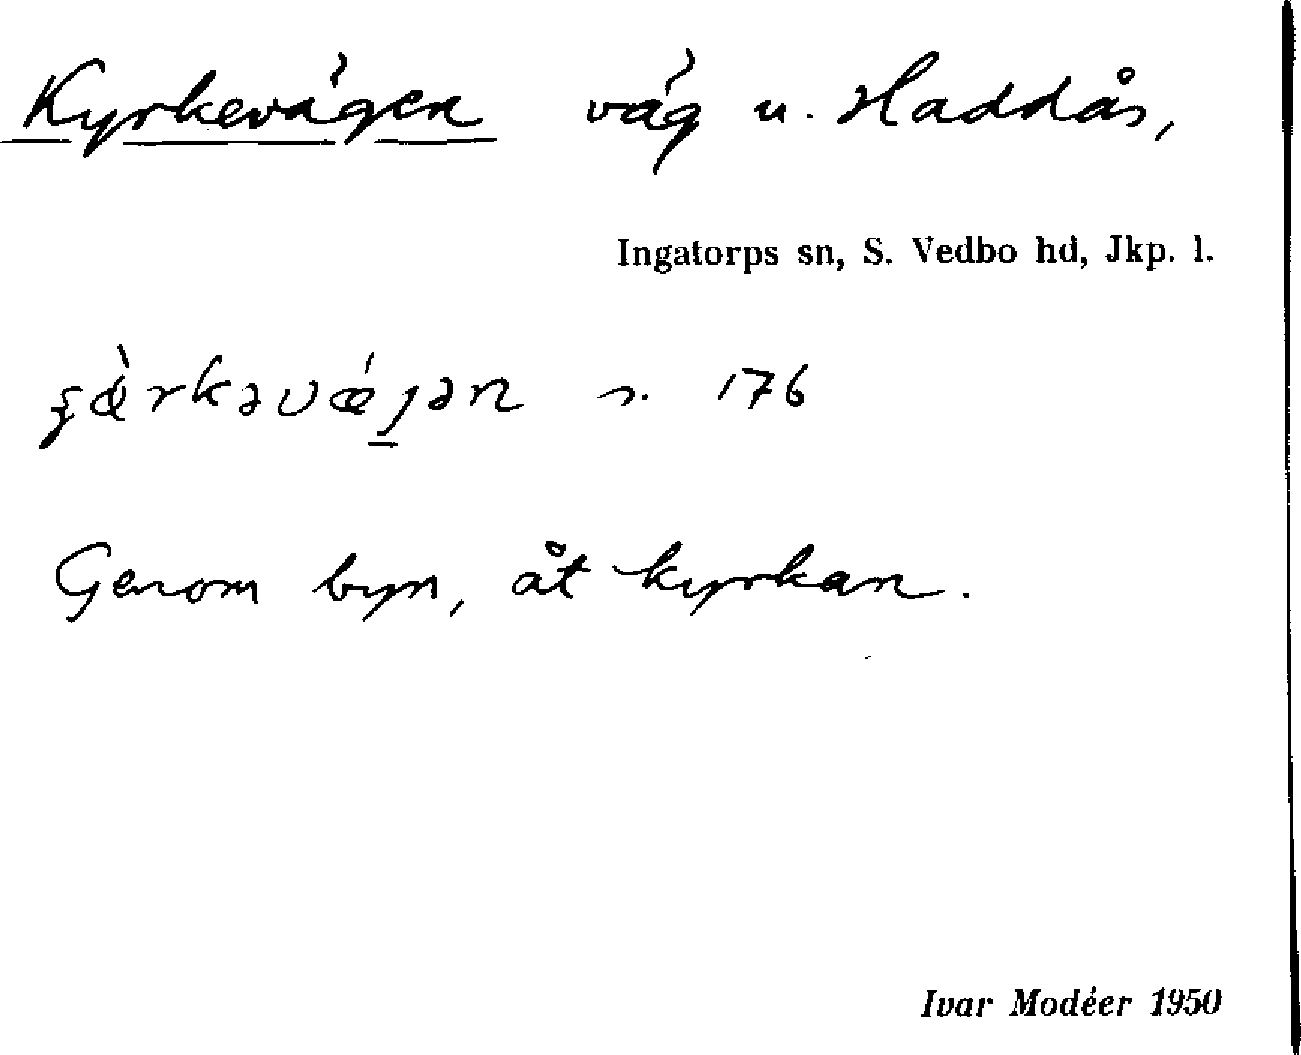 Kyrkevägen väg u. Haddås,
Ingatorps sn, S. Vedbo hd, Jkp. l.
s. 176
Genom byn, åt kyrkan.
Ivar Modéer 1950